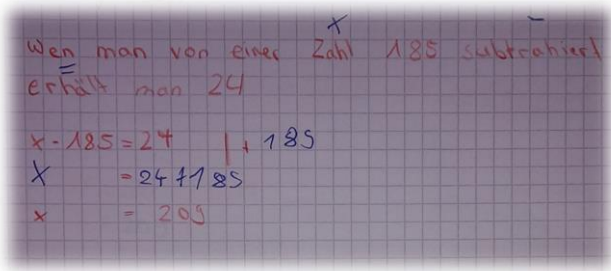 x -
Wen man von einer Zahl 185 subtrahiert
=
erhält man 24
x - 185 = 24 | + 185
X = 24 + 185
x = 209